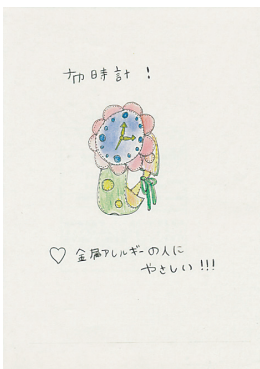 布時計!
♡ 金属アレルギーの人に
やさしい!!!